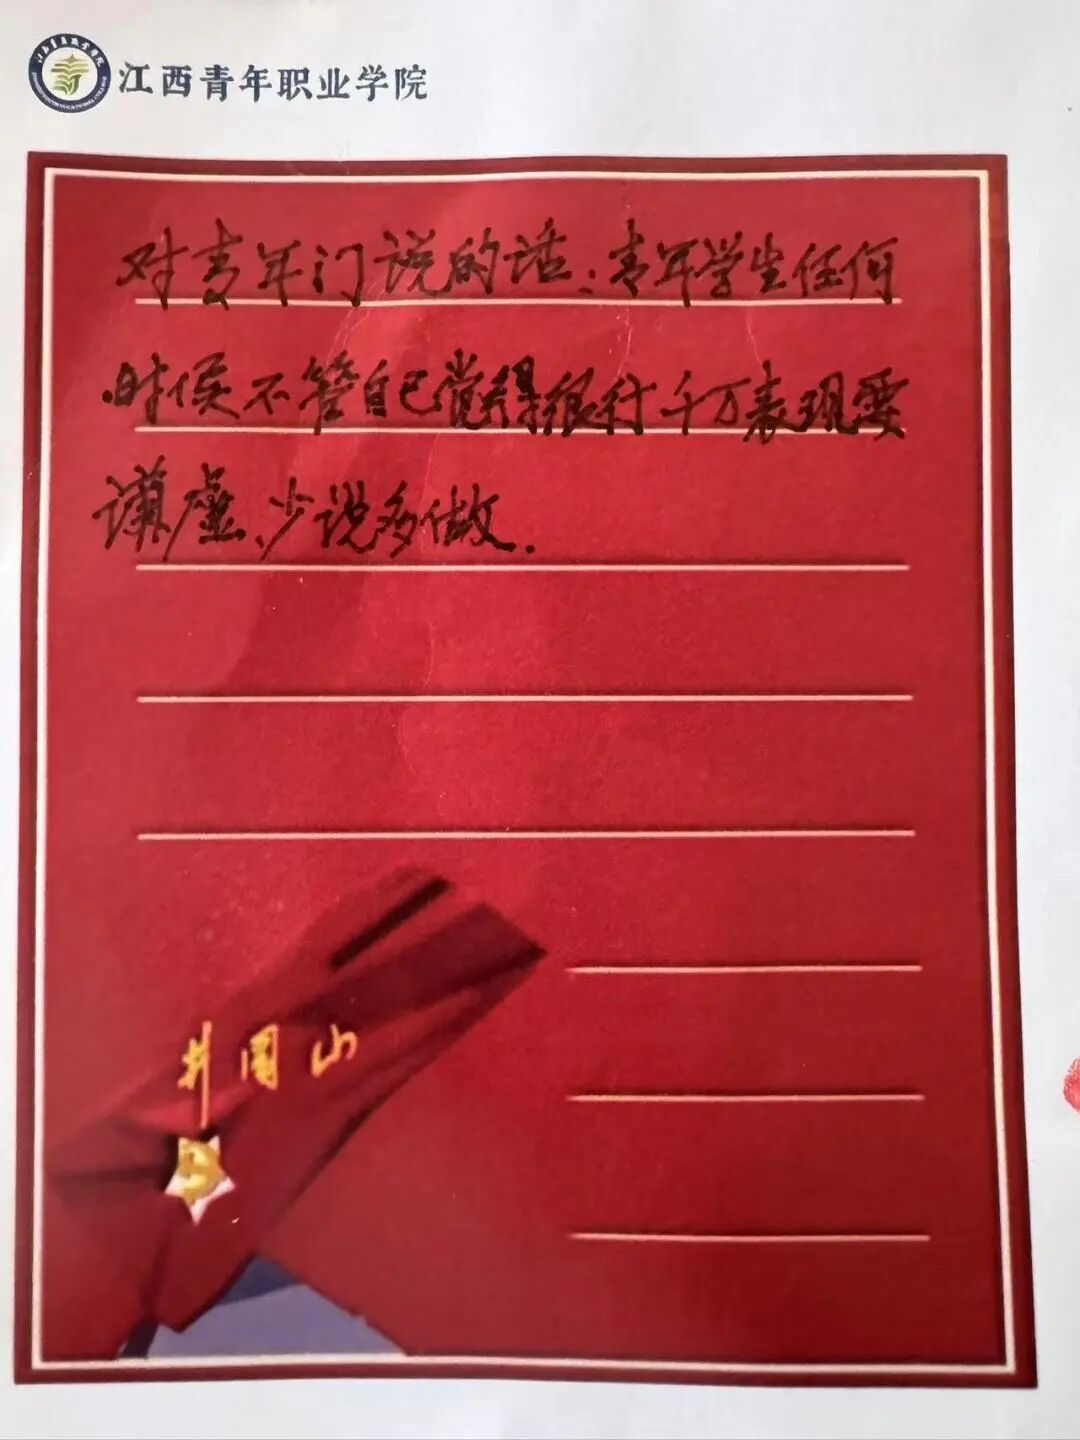 江西青年职业学院
对青年门说的话：青年学生任何
时侯不管自己觉得很行千万表现要
谦虚、少说多做.
井冈山